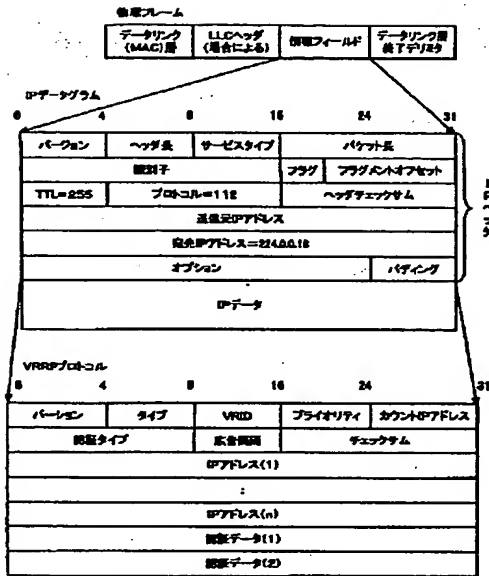 物理フレーム
データリンク
(MAC)層
LLCヘッダ
(場合による)
情報フィールド
データリンク層
終了デリミタ
IPデータグラム
0 4 8 16 24 31
バージョン ヘッダ長 サービスタイプ パケット長
識別子 フラグ フラグメントオフセット
TTL=255 プロトコル=112 ヘッダチェックサム
送信元IPアドレス
宛先IPアドレス=224.0.0.18
オプション パディング
IPデータ
IPヘッダ
VRRPプロトコル
0 4 8 16 24 31
バージョン タイプ VRID プライオリティ カウントIPアドレス
認証タイプ 広告間隔 チェックサム
IPアドレス(1)
:
IPアドレス(n)
認証データ(1)
認証データ(2)